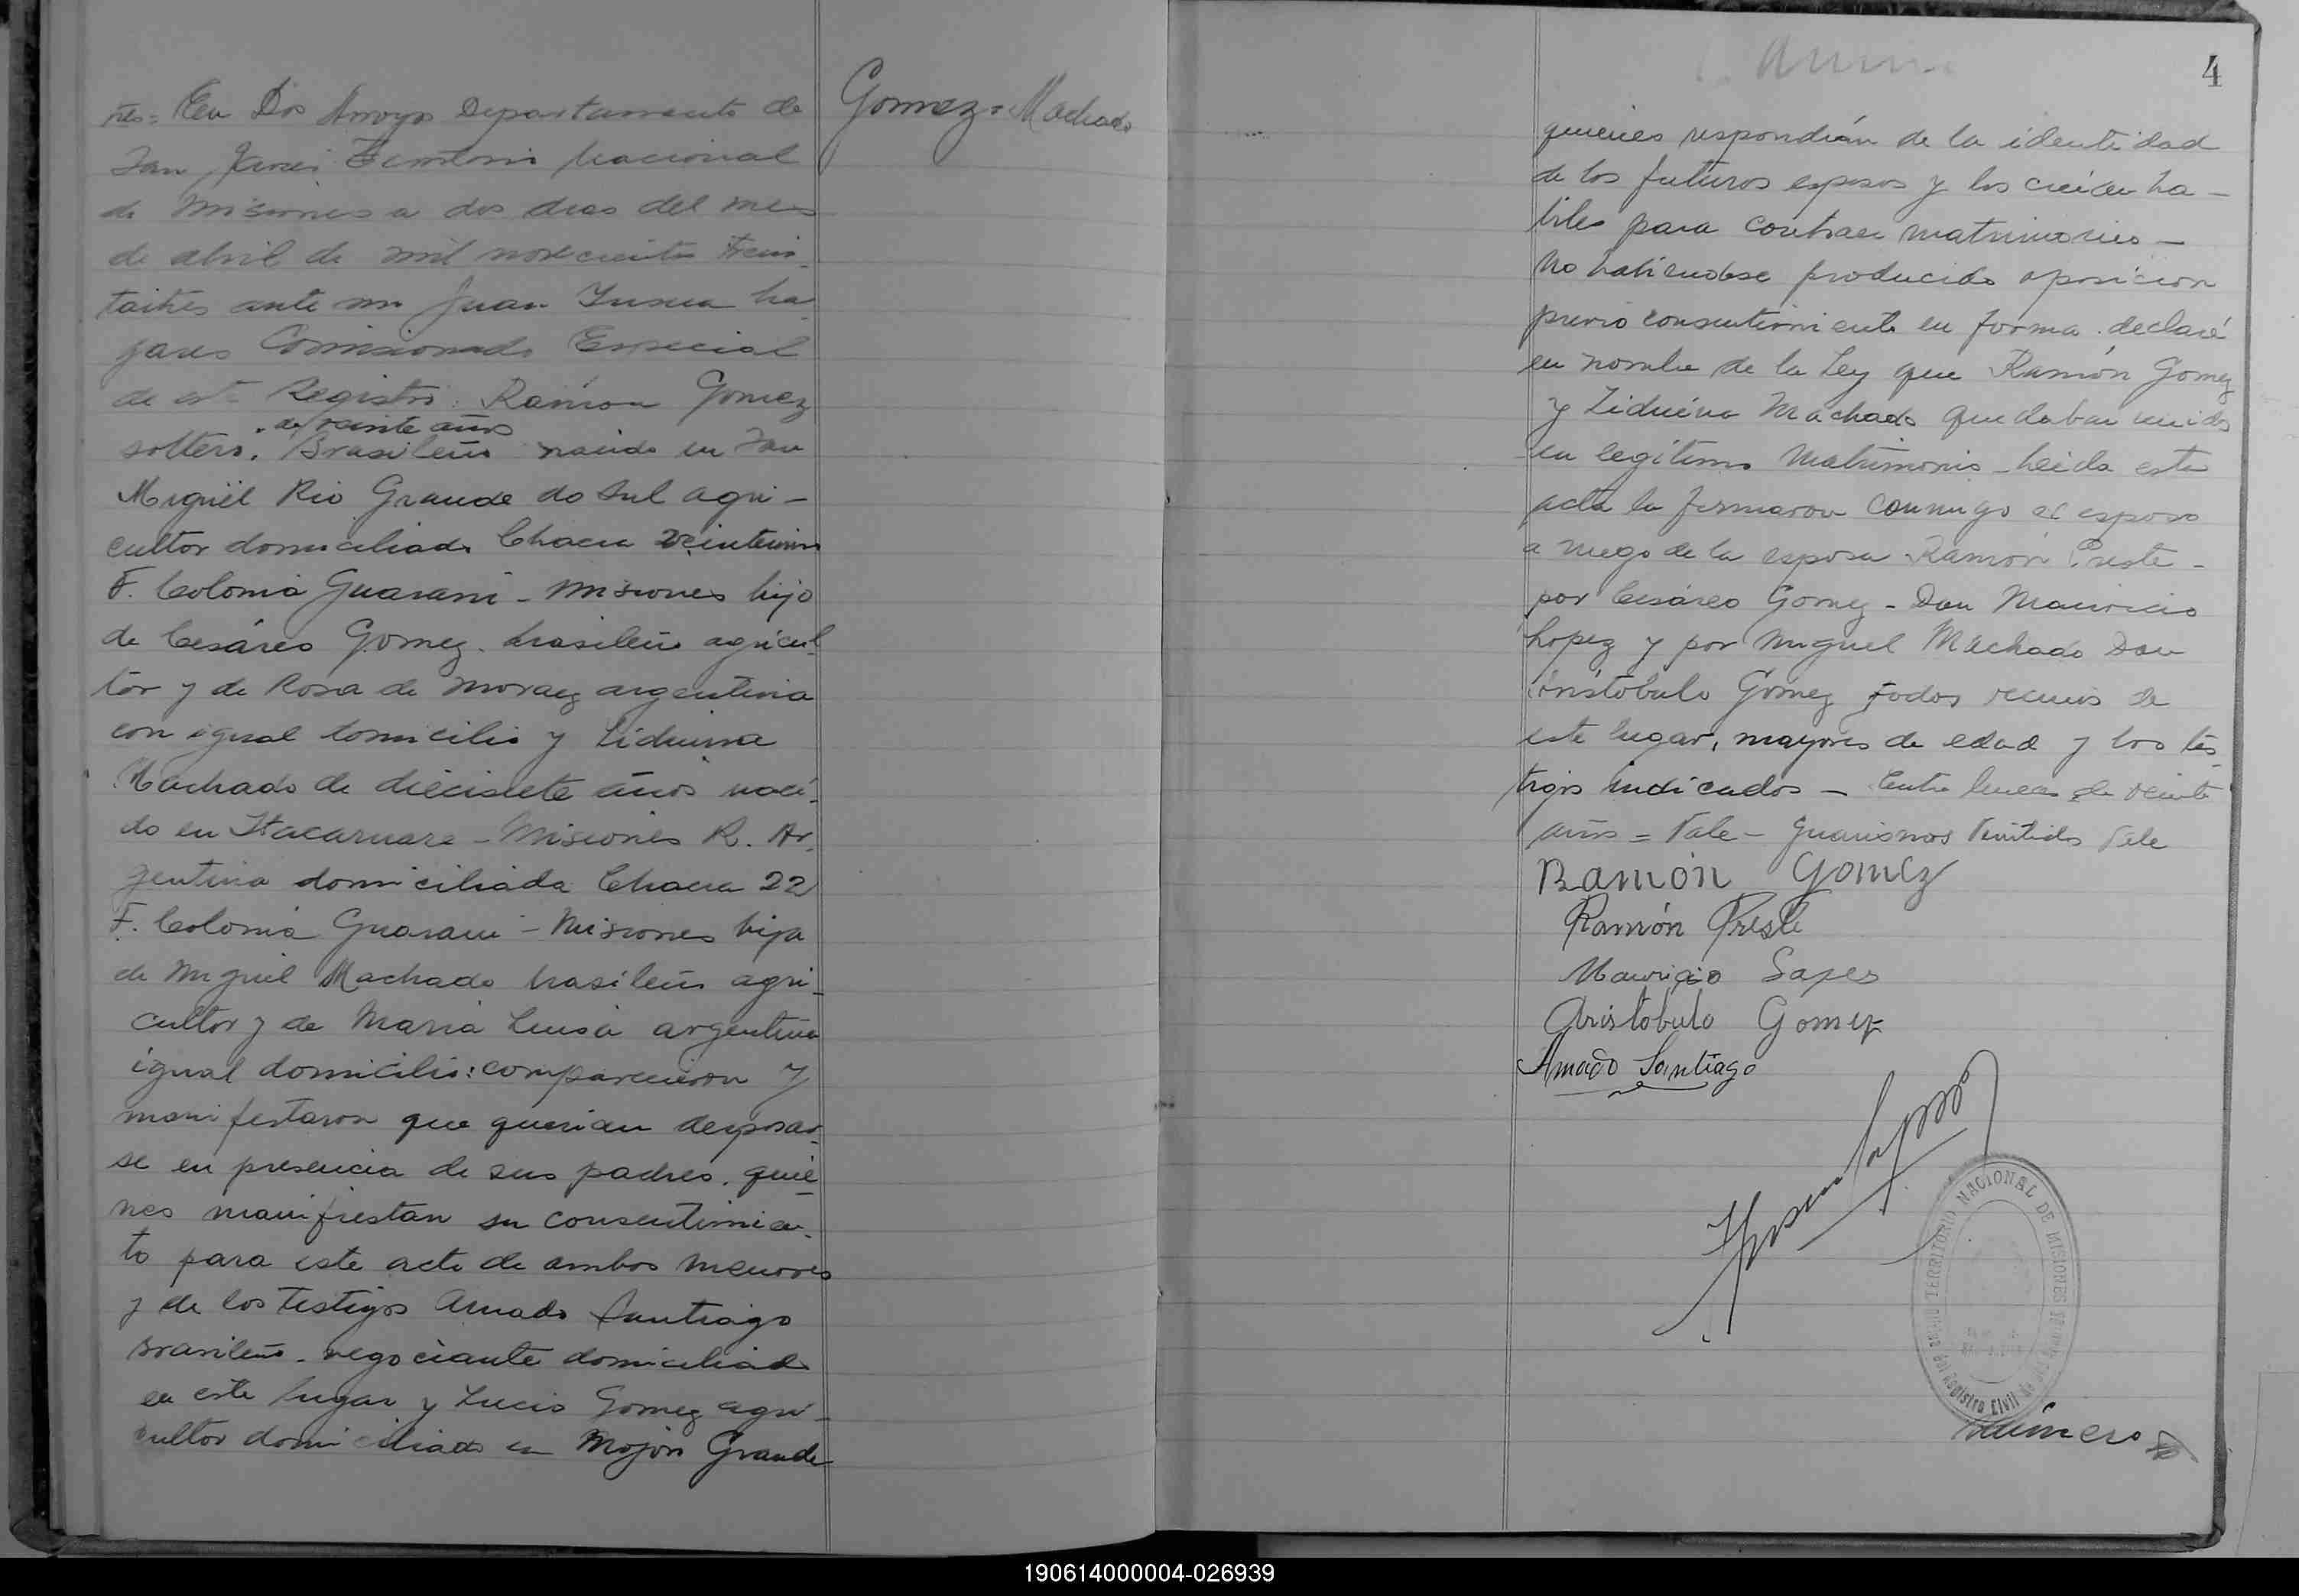 Gomez = Machado
tres = En Dos Arroyos Departamento de
San Javier Territorio Nacional
de Misiones a dos dias del mes
de abril de mil novecientos trein-
taitres ante mi Juan
Comisionado Especial
de este Registro: Ramón Gomez
de veinte años
soltero. Brasileño nacido en San
Miguel Rio Grande do Sul agri-
cultor domiciliado Chacra
F. Colonia Guarani - Misiones hijo
de Cesáreo Gomez. brasileño agricul-
tor y de Rosa de Moraez argentina
con igual domicilio y Liduina
Machado de diecisiete años naci-
do en Itacaruare - Misiones R. Ar-
gentina domiciliada Chacra 22
F. Colonia Guarani - Misiones hija
de Miguel Machado brasileño agri-
cultor y de Maria Luisa argentina
igual domicilio: comparecieron y
manifestaron que querian desposar-
se en presencia de sus padres. quie-
nes manifiestan su consentimien-
to para este acto de ambos menores
y de los testigos Amado Santiago
Brasileño - negociante domiciliado
en este lugar y Lucio Gomez agri-
cultor domiciliado en Mojon Grande
4
quienes respondián de la identidad
de los futuros esposos y los creiden ha-
biles para contraer matrimonio -
No habiendose producido oposicion
previo consentimiento en forma. declaré
en nombre de la Ley que Ramón Gomez
y Liduina Machado quedaban unidos
en legitimo Matrimonio - Leida esta
acta la firmaron conmigo el esposo
a ruego de la esposa Ramón Preste -
por Cesáreo Gomez - Don Mauricio
Lopez y por Miguel Machado Don
Aristobulo Gomez todos vecinos de
este lugar, mayores de edad y los tes-
tigos indicados - Entre lineas de veinte
años = Vale - Guarismos Vale
Ramón Gomez
Ramón Preste
Mauricio Lapes
Aristobulo Gomez
Amado Santiago
TERRITORIO NACIONAL DE MISIONES
Registro Civil
Número
190614000004-026939